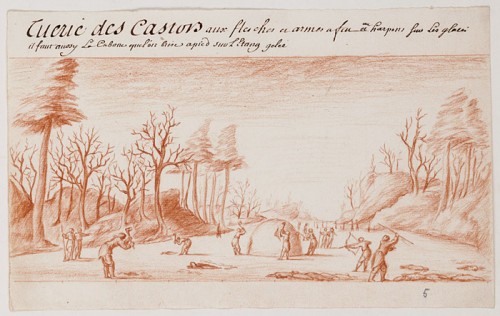 Tuerie des Castors aux fleches et armes a feu et harpons sur les glaces
il faut aussy La Cabane
sur L'Etang gelee
6